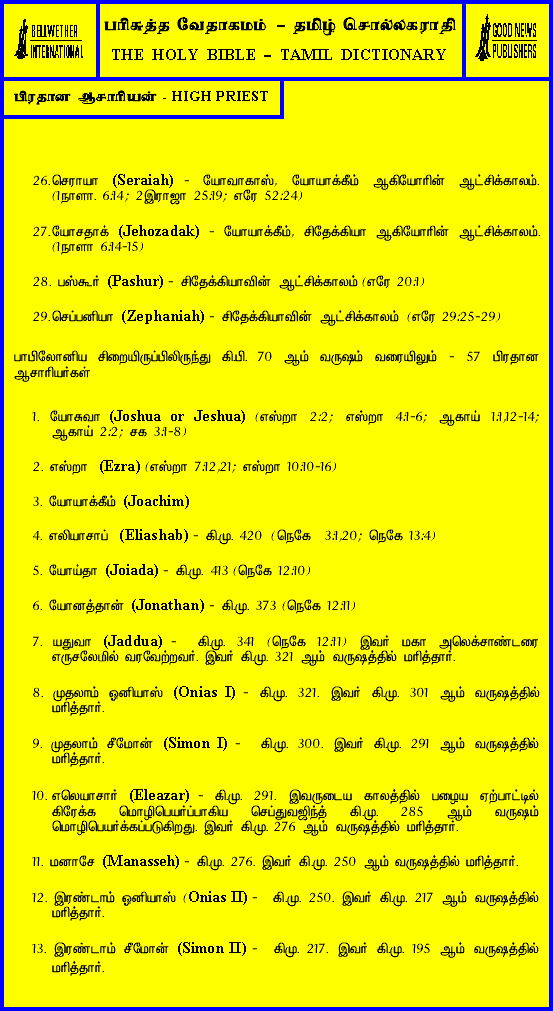 BELLWETHER
INTERNATIONAL
பரிசுத்த வேதாகமம் – தமிழ் சொல்லகராதி
THE HOLY BIBLE – TAMIL DICTIONARY
GOOD NEWS
PUBLISHERS
பிரதான ஆசாரியன் - HIGH PRIEST
26.செராயா (Seraiah) - யோவாகாஸ், யோயாக்கீம் ஆகியோரின் ஆட்சிக்காலம்.
(1நாளா. 6:14; 2இராஜா 25:19; எரே 52:24)
27.யோசதாக் (Jehozadak) - யோயாக்கீம், சிதேக்கியா ஆகியோரின் ஆட்சிக்காலம்.
(1நாளா 6:14-15)
28. பஸ்கூர் (Pashur) - சிதேக்கியாவின் ஆட்சிக்காலம் (எரே 20:1)
29.செப்பனியா (Zephaniah) - சிதேக்கியாவின் ஆட்சிக்காலம் (எரே 29:25-29)
பாபிலோனிய சிறையிருப்பிலிருந்து கி.பி. 70 ஆம் வருஷம் வரையிலும் - 57 பிரதான
ஆசாரியர்கள்
1. யோசுவா (Joshua or Jeshua) (எஸ்றா 2:2; எஸ்றா 4:1-6; ஆகாய் 1:1,12-14;
ஆகாய் 2:2; சக 3:1-8)
2. எஸ்றா (Ezra) (எஸ்றா 7:12,21; எஸ்றா 10:10-16)
3. யோயாக்கீம் (Joachim)
4. எலியாசாப் (Eliashab) - கி.மு. 420 (நெகே 3:1,20; நெகே 13:4)
5. யோய்தா (Joiada) - கி.மு. 413 (நெகே 12:10)
6. யோனத்தான் (Jonathan) - கி.மு. 373 (நெகே 12:11)
7. யதுவா (Jaddua) - கி.மு. 341 (நெகே 12:11) இவர் மகா அலெக்சாண்டரை
எருசலேமில் வரவேற்றவர். இவர் கி.மு. 321 ஆம் வருஷத்தில் மரித்தார்.
8. முதலாம் ஓனியாஸ் (Onias I) - கி.மு. 321. இவர் கி.மு. 301 ஆம் வருஷத்தில்
மரித்தார்.
9. முதலாம் சீமோன் (Simon I) - கி.மு. 300. இவர் கி.மு. 291 ஆம் வருஷத்தில்
மரித்தார்.
10. எலெயாசார் (Eleazar) - கி.மு. 291. இவருடைய காலத்தில் பழைய ஏற்பாட்டில்
கிரேக்க மொழிபெயர்ப்பாகிய செப்துவஜிந்த் கி.மு. 285 ஆம் வருஷம்
மொழிபெயர்க்கப்படுகிறது. இவர் கி.மு. 276 ஆம் வருஷத்தில் மரித்தார்.
11. மனாசே (Manasseh) - கி.மு. 276. இவர் கி.மு. 250 ஆம் வருஷத்தில் மரித்தார்.
12. இரண்டாம் ஓனியாஸ் (Onias II) - கி.மு. 250. இவர் கி.மு. 217 ஆம் வருஷத்தில்
மரித்தார்.
13. இரண்டாம் சீமோன் (Simon II) - கி.மு. 217. இவர் கி.மு. 195 ஆம் வருஷத்தில்
மரித்தார்.